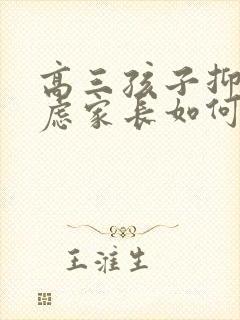 高三孩子抑
虑家长如何
王淮生